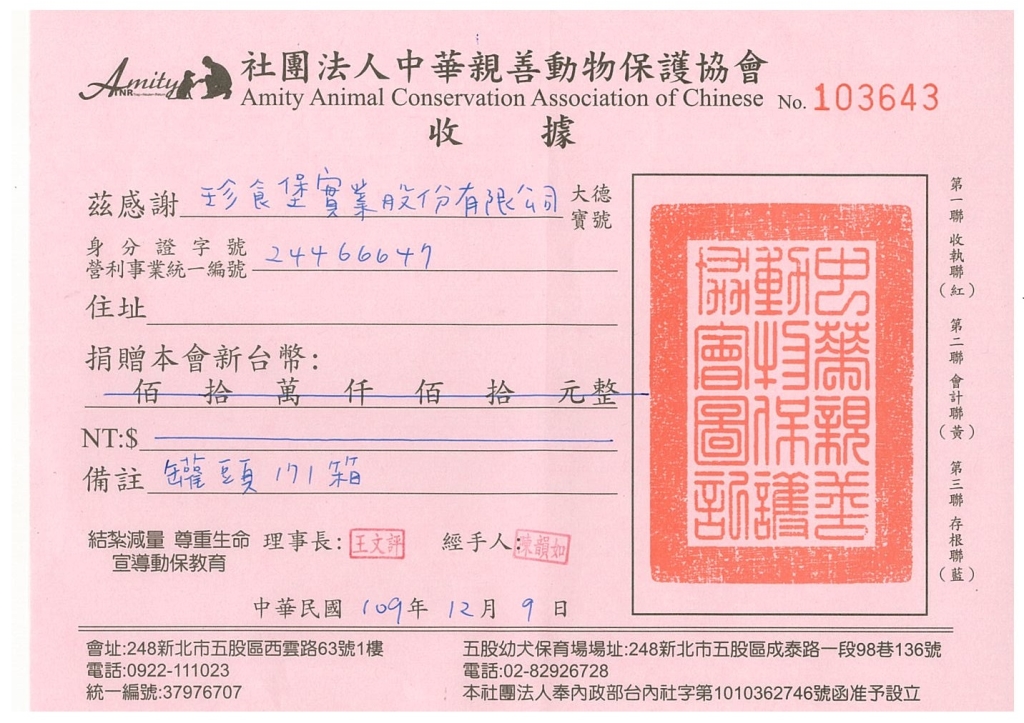 Amity
TNR
社團法人中華親善動物保護協會
Amity Animal Conservation Association of Chinese No. 103643
收 據
茲感謝 珍食堡實業股份有限公司 大德寶號
身分證字號
營利事業統一編號 24466647
住址
捐贈本會新台幣:
佰 拾 萬 仟 佰 拾 元整
NT:$
備註 罐頭 171箱
結紮減量 尊重生命
宣導動保教育
理事長: 王文評 經手人: 陳韻如
中華民國 109年 12月 9日
中華親善
動物保護
協會圖記
第一聯 收執聯(紅)
第二聯 會計聯(黃)
第三聯 存根聯(藍)
會址:248新北市五股區西雲路63號1樓
電話:0922-111023
統一編號:37976707
五股幼犬保育場場址:248新北市五股區成泰路一段98巷136號
電話:02-82926728
本社團法人奉內政部台內社字第1010362746號函准予設立